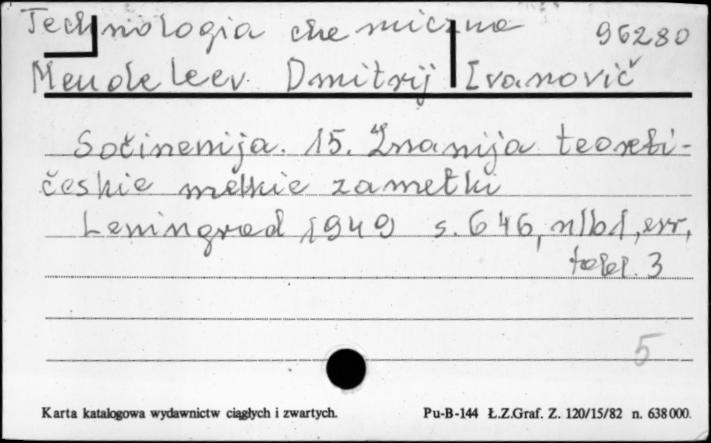 Technologia chemiczna 96280
Mendeleev Dmitrij Ivanovič
Sočinenija. 15. Znanija teoreti-
českie melkie zametki
Leningrad 1949 s. 646, err,
tabl. 3
5
Karta katalogowa wydawnictw ciągłych i zwartych. Pu-B-144 Ł.Z.Graf. Z. 120/15/82 n. 638000.